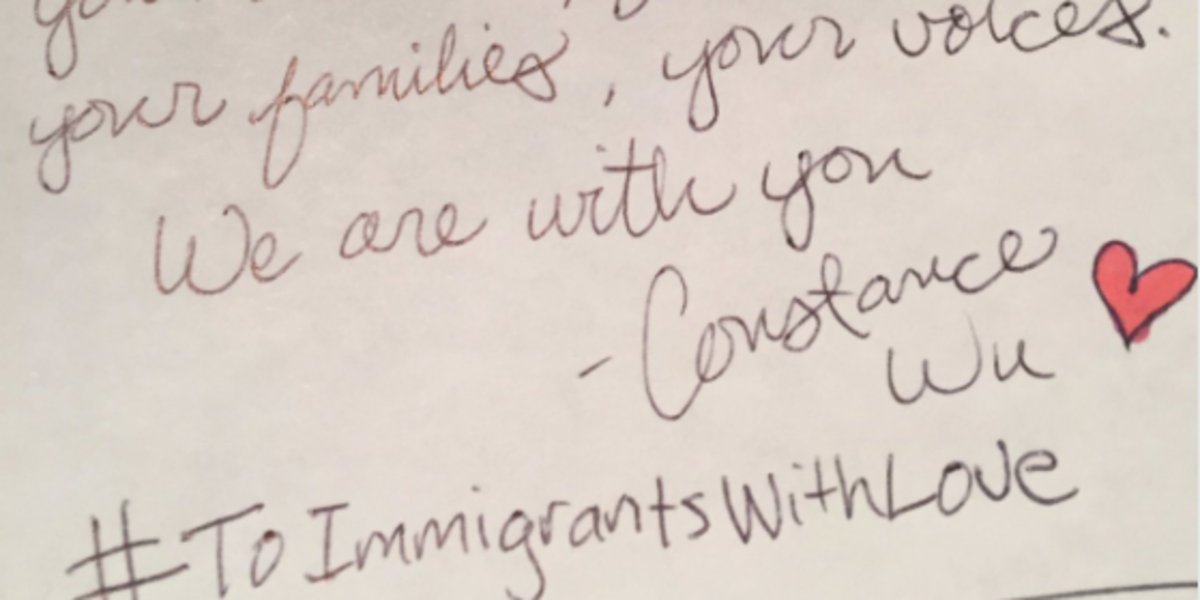 your families, your voices.
We are with you
- Constance
Wu
#ToImmigrantsWithLove